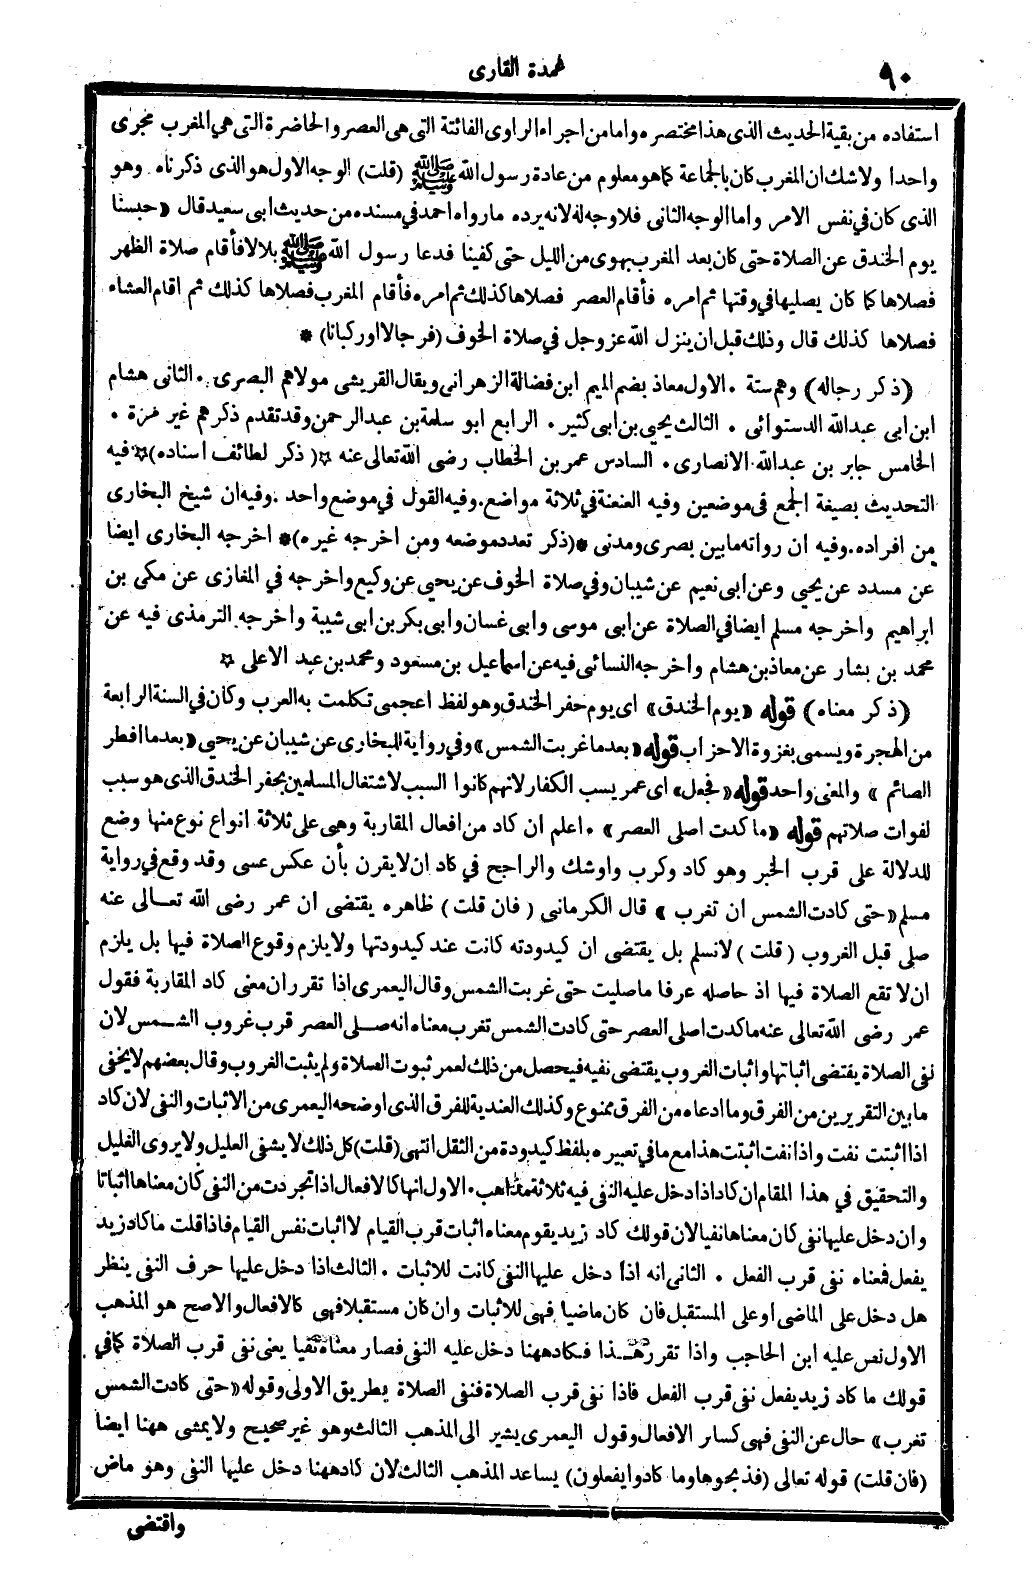 ٩٠
عمدة القارى
استفاده من بقية الحديث الذى هذا مختصره واما من اجراء الراوى الفائتة التى هى العصر والحاضرة التى هى المغرب مجرى
واحدا ولاشك ان المغرب كان بالجماعة كما هو معلوم من عادة رسول الله ﷺ (قلت) الوجه الاول هو الذى ذكرناه وهو
الذى كان فى نفس الامر واما الوجه الثانى فلا وجه له لانه يرده مارواه احمد فى مسنده من حديث ابى سعيد قال «حبسنا
يوم الخندق عن الصلاة حتى كان بعد المغرب بهوى من الليل حتى كفينا فدعا رسول الله ﷺ بلالا فأقام صلاة الظهر
فصلاها كما كان يصليها فى وقتها ثم امره فأقام العصر فصلاها كذلك ثم امره فأقام المغرب فصلاها كذلك ثم اقام العشاء
فصلاها كذلك قال وذلك قبل ان ينزل الله عز وجل فى صلاة الخوف (فرجالا او ركبانا) *
(ذكر رجاله) وهم ستة . الاول معاذ بضم الميم ابن فضالة الزهرانى ويقال القريشى مولاهم البصرى . الثانى هشام
ابن ابى عبدالله الدستوائى . الثالث يحيى بن ابى كثير . الرابع ابو سلمة بن عبد الرحمن وقد تقدم ذكرهم غير مرة .
الخامس جابر بن عبدالله الانصارى . السادس عمر بن الخطاب رضى الله تعالى عنه ☆ (ذكر لطائف اسناده) ☆ فيه
التحديث بصيغة الجمع فى موضعين وفيه العنعنة فى ثلاثة مواضع . وفيه القول فى موضع واحد . وفيه ان شيخ البخارى
من افراده . وفيه ان رواته مابين بصرى ومدنى *(ذكر تعدد موضعه ومن اخرجه غيره)* اخرجه البخارى ايضا
عن مسدد عن يحيى وعن ابى نعيم عن شيبان وفى صلاة الخوف عن يحيى عن وكيع واخرجه فى المغازى عن مكى بن
ابراهيم واخرجه مسلم ايضا فى الصلاة عن ابى موسى وابى غسان وابى بكر بن ابى شيبة واخرجه الترمذى فيه عن
محمد بن بشار عن معاذ بن هشام واخرجه النسائى فيه عن اسماعيل بن مسعود ومحمد بن عبد الاعلى ☆
(ذكر معناه) قوله «يوم الخندق» اى يوم حفر الخندق وهو لفظ اعجمى تكلمت به العرب وكان فى السنة الرابعة
من الهجرة ويسمى بغزوة الاحزاب قوله «بعد ما غربت الشمس» وفى رواية للبخارى عن شيبان عن يحيى «بعد ما افطر
الصائم» والمعنى واحد قوله «فجعل» اى عمر يسب الكفار لانهم كانوا السبب لاشتغال المسلمين بحفر الخندق الذى هو سبب
لفوات صلاتهم قوله «ما كدت اصلى العصر» . اعلم ان كاد من افعال المقاربة وهى على ثلاثة انواع نوع منها وضع
للدلالة على قرب الخبر وهو كاد وكرب واوشك والراجح فى كاد ان لا يقرن بأن عكس عسى وقد وقع فى رواية
مسلم «حتى كادت الشمس ان تغرب» قال الكرمانى (فان قلت) ظاهره يقتضى ان عمر رضى الله تعالى عنه
صلى قبل الغروب (قلت) لا نسلم بل يقتضى ان كيدودته كانت عند كيدودتها ولا يلزم وقوع الصلاة فيها بل يلزم
ان لا تقع الصلاة فيها اذ حاصله عرفا ماصليت حتى غربت الشمس وقال اليعمرى اذا تقرر ان معنى كاد المقاربة فقول
عمر رضى الله تعالى عنه ما كدت اصلى العصر حتى كادت الشمس تغرب معناه انه صلى العصر قرب غروب الشمس لان
نفى الصلاة يقتضى اثباتها واثبات الغروب يقتضى نفيه فيحصل من ذلك لعمر ثبوت الصلاة ولم يثبت الغروب وقال بعضهم لا يخفى
ما بين التقريرين من الفرق وما ادعاه من الفرق ممنوع وكذلك العندية للفرق الذى اوضحه اليعمرى من الاثبات والنفى لان كاد
اذا اثبتت نفت واذا نفت اثبتت هذا مع ما فى تعبيره بلفظ كيدودة من الثقل انتهى (قلت) كل ذلك لا يشفى العليل ولا يروى الغليل
والتحقيق فى هذا المقام ان كاد اذا دخل عليه النفى فيه ثلاثة مذاهب . الاول انها كالافعال اذا تجردت من النفى كان معناها اثباتا
وان دخل عليها نفى كان معناها نفيا لان قولك كاد زيد يقوم معناه اثبات قرب القيام لا اثبات نفس القيام فاذا قلت ما كاد زيد
يفعل فمعناه نفى قرب الفعل . الثانى انه اذا دخل عليها النفى كانت للاثبات . الثالث اذا دخل عليها حرف النفى ينظر
هل دخل على الماضى او على المستقبل فان كان ماضيا فهى للاثبات وان كان مستقبلا فهى كالافعال والاصح هو المذهب
الاول نص عليه ابن الحاجب واذا تقرر هذا فكاد ههنا دخل عليه النفى فصار معناه نفيا يعنى نفى قرب الصلاة كما فى
قولك ما كاد زيد يفعل نفى قرب الفعل فاذا نفى قرب الصلاة فنفى الصلاة بطريق الاولى وقوله «حتى كادت الشمس
تغرب» حال عن النفى فهى كسائر الافعال وقول اليعمرى يشير الى المذهب الثالث وهو غير صحيح ولا يمشى ههنا ايضا
(فان قلت) قوله تعالى (فذبحوها وما كادوا يفعلون) يساعد المذهب الثالث لان كاد ههنا دخل عليها النفى وهو ماض
واقتضى